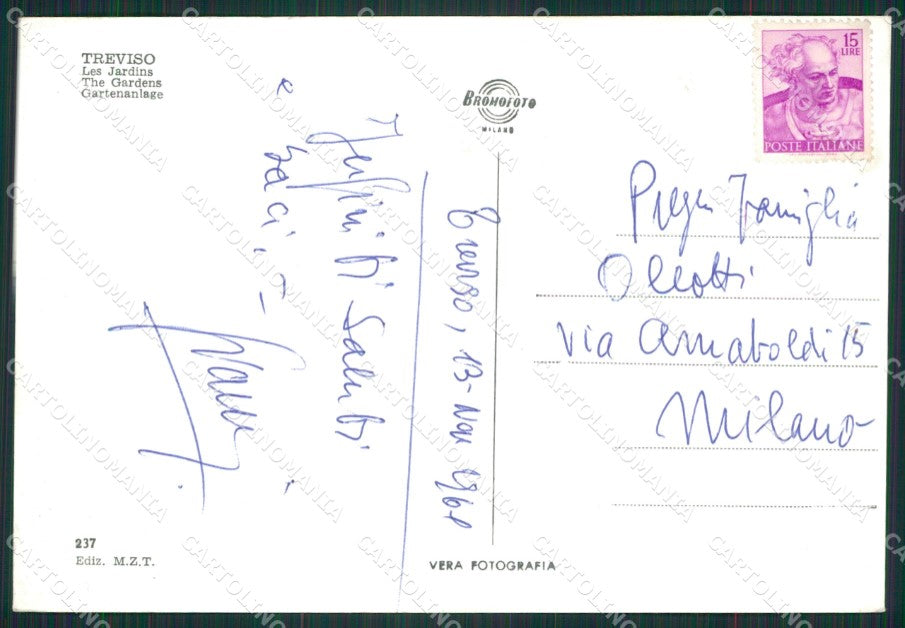 TREVISO
Les Jardins
The Gardens
Gartenanlage
BROMOFOTO
MILANO
15
LIRE
POSTE ITALIANE
Treviso, 13-Nov 196
Saluti
e
Baci
Famiglia
via Arnaboldi 15
Milano
237
Ediz. M.Z.T.
VERA FOTOGRAFIA
CARTOLINOMANIA